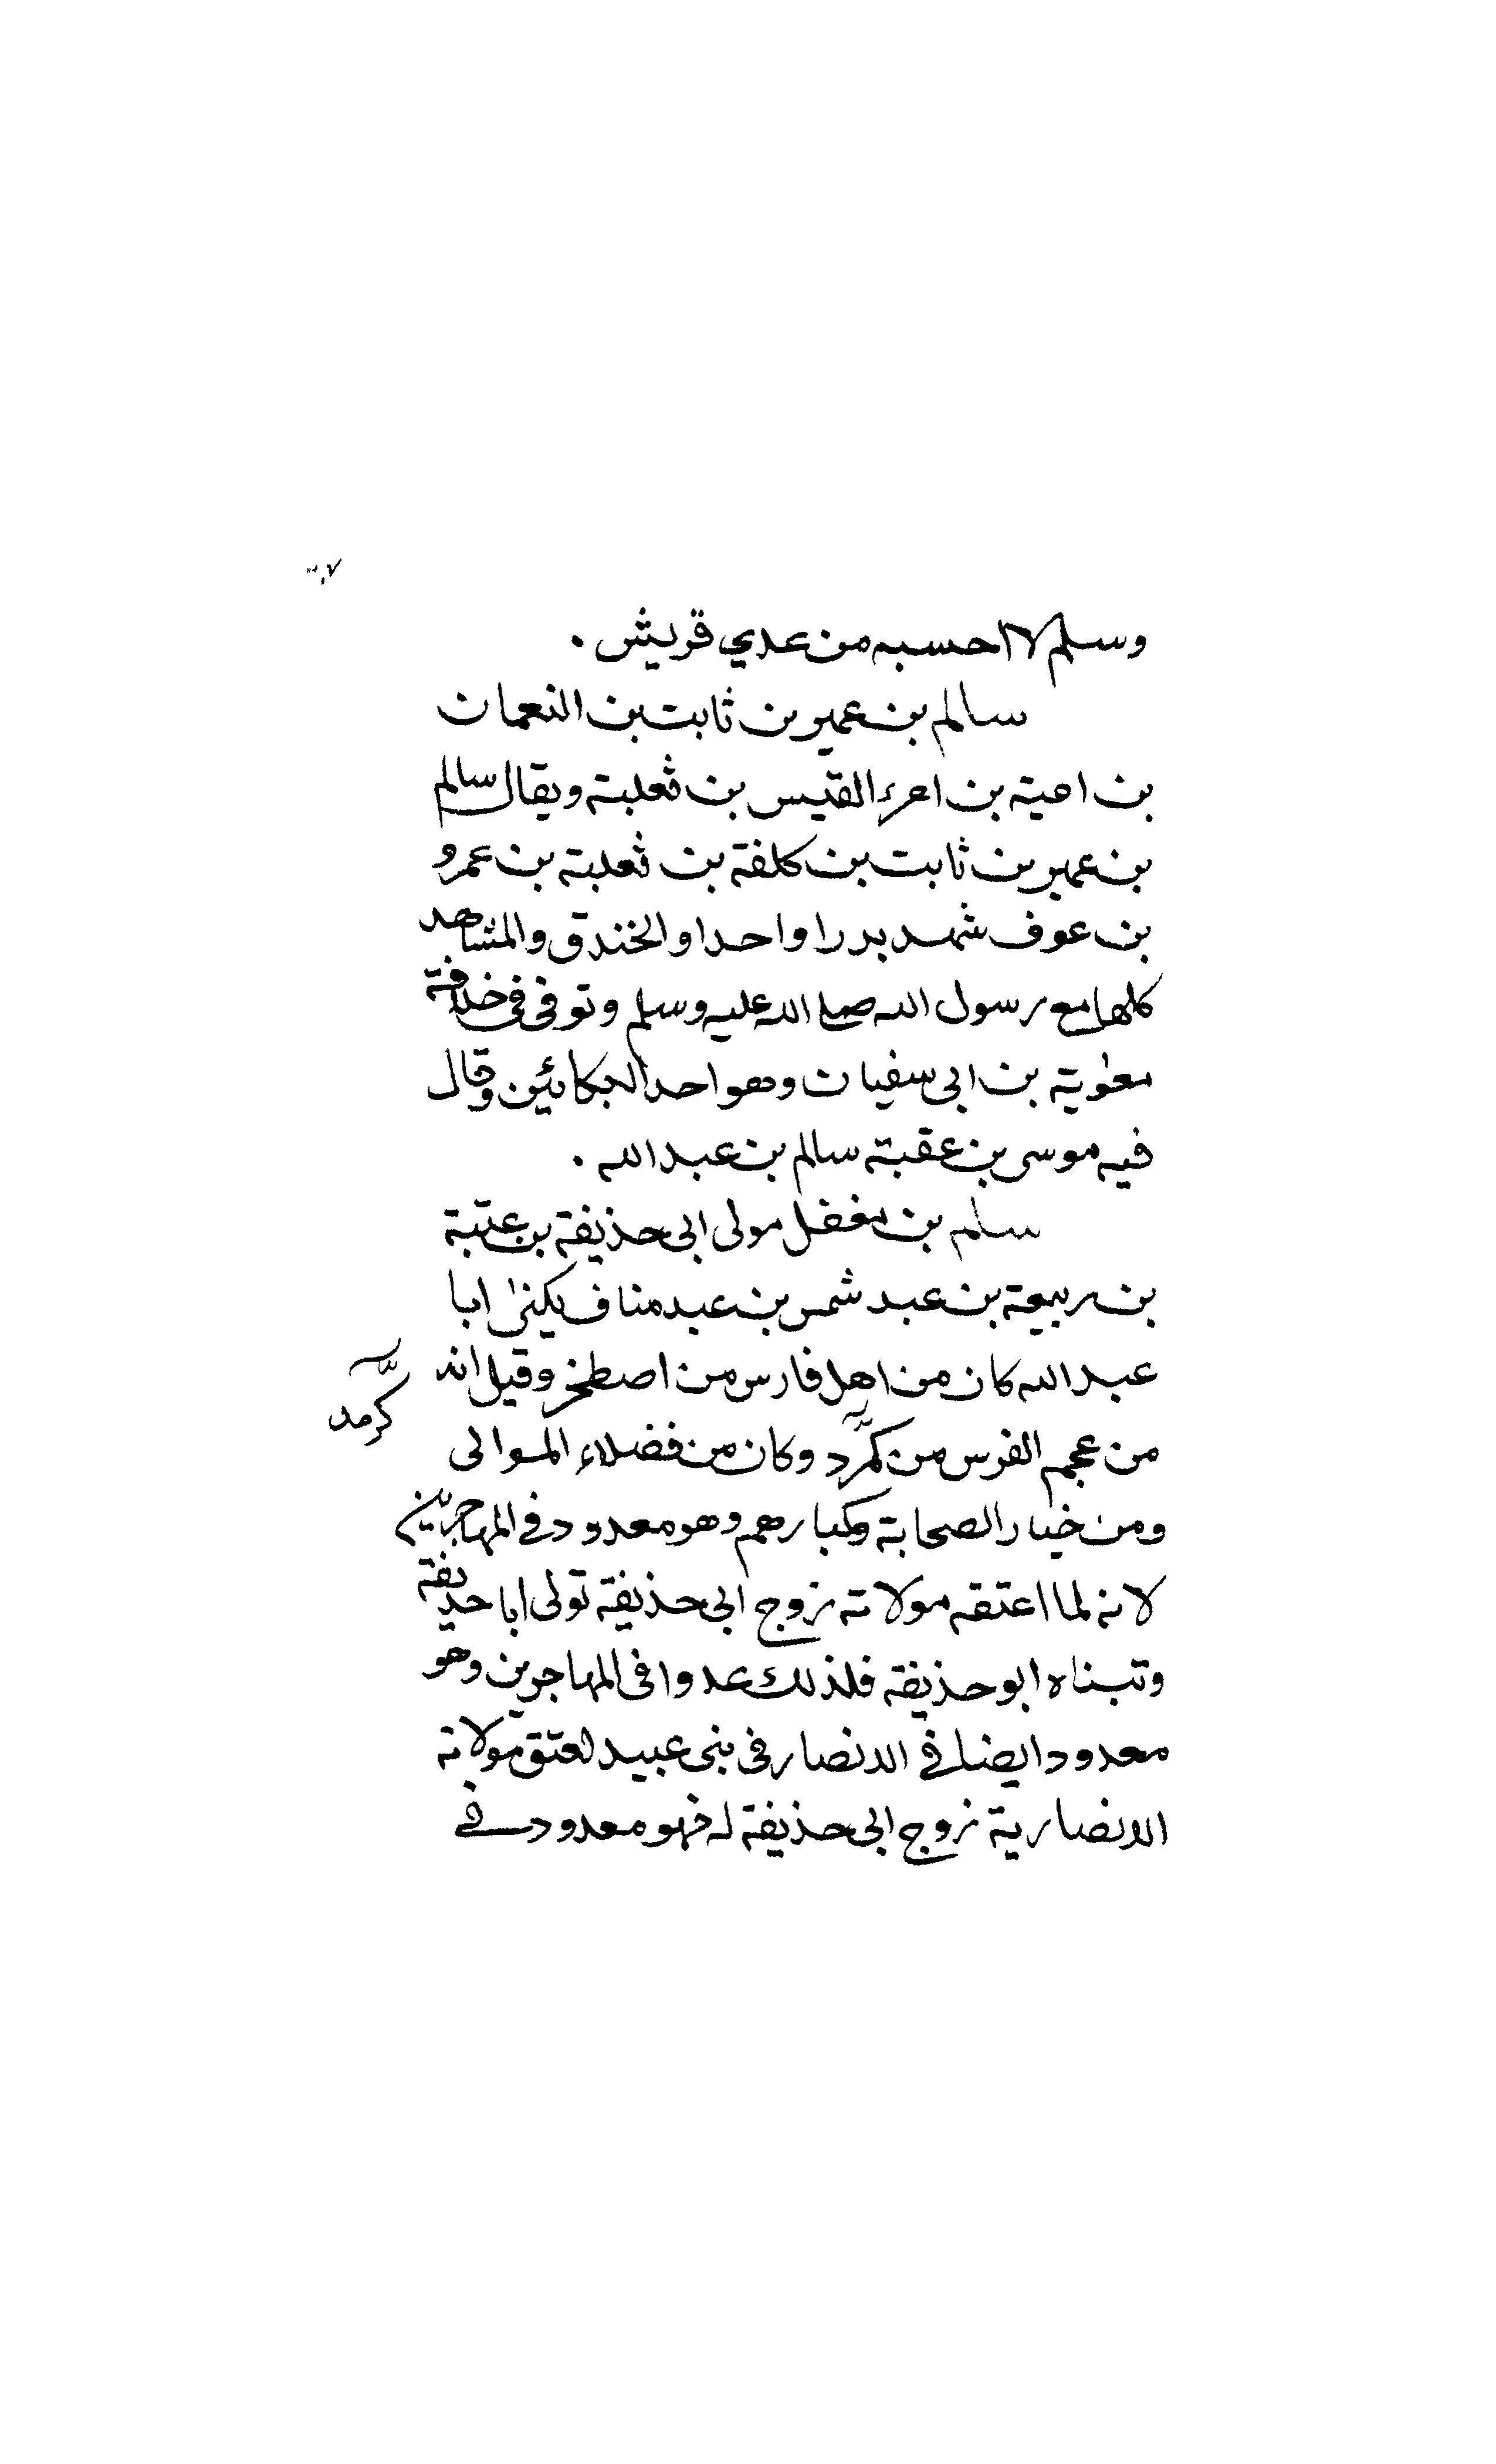 وسلم لا احسبه من عدي قريش .
سالم بن عمير بن ثابت بن النعمان
بن امية بن امرء القيس بن ثعلبة ويقال سالم
بن عمير بن ثابت بن كلفة بن ثعلبة بن عمرو
بن عوف شهد بدرا واحدا والخندق والمشاهد
كلها مع رسول الله صلى الله عليه وسلم وتوفى فى خلافة
معٰوية بن ابى سفيان وهو احد البكائين وقال
فيه موسى بن عقبة سالم بن عبد الله .
سالم بن معقل مولى ابى حذيفة بن عتبة
بن ربيعة بن عبد شمس بن عبد مناف يكنىٰ ابا
عبد الله كان من اهل فارس من اصطخر وقيل انه
من عجم الفرس من كرمد وكان من فضلاء الموالى
كرمد
ومن خيار الصحابة وكبارهم وهو معدود فى المهاجرين
لانه لما اعتقه مولاته زوج ابى حذيفة تولى ابا حذيفة
وتبناه ابو حذيفة فلذلك عدوا فى المهاجرين وهو
معدود ايضا فى الانصار فى بنى عبيد لعتق مولاته
الانصارية زوج ابى حذيفة له فهو معدود فى